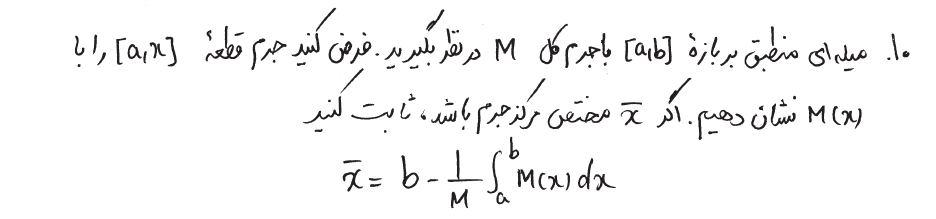 ۱۰. میله‌ای منطبق بر بازهٔ [a,b] با جرم کل M در نظر بگیرید. فرض کنید جرم قطعهٔ [a,x] را با
M(x) نشان دهیم. اگر x̄ مختص مرکز جرم باشد، ثابت کنید
x̄ = b - 1/M ∫_a^b M(x) dx